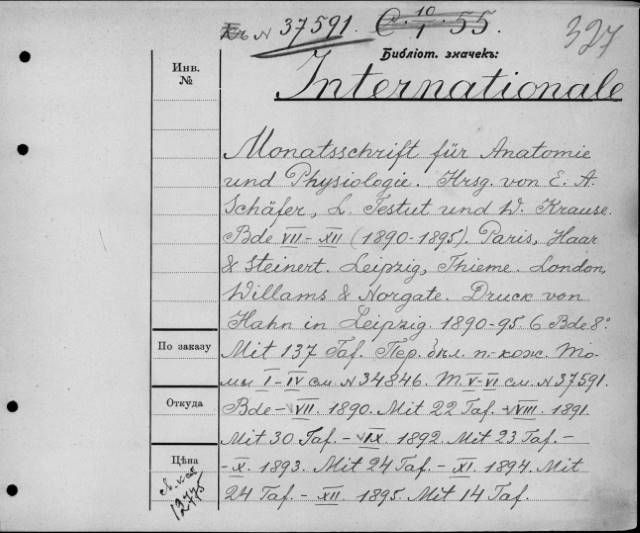 Къ N 37591. C. 10/1. 55.
327
Библіот. значекъ:
Инв.
№
Internationale
Monatsschrift für Anatomie
und Physiologie. Hrsg. von E. A.
Schäfer, L. Testut und W. Krause.
Bde VII - XII (1890-1895). Paris, Haar
& Steinert. Leipzig, Thieme. London,
Willams & Norgate. Druck von
Hahn in Leipzig 1890-95. 6 Bde 8°
По заказу
Mit 137 Taf. Пер. бѣл. п.-кож. То-
мы I - IV см. N 34846. Т. V-VI см. N 37591.
Откуда
Bde - VII. 1890. Mit 22 Taf. - VIII. 1891.
Mit 30 Taf. - IX. 1892. Mit 23 Taf. -
Цѣна
- X. 1893. Mit 24 Taf. - XI. 1894. Mit
24 Taf. - XII. 1895. Mit 14 Taf.
12775